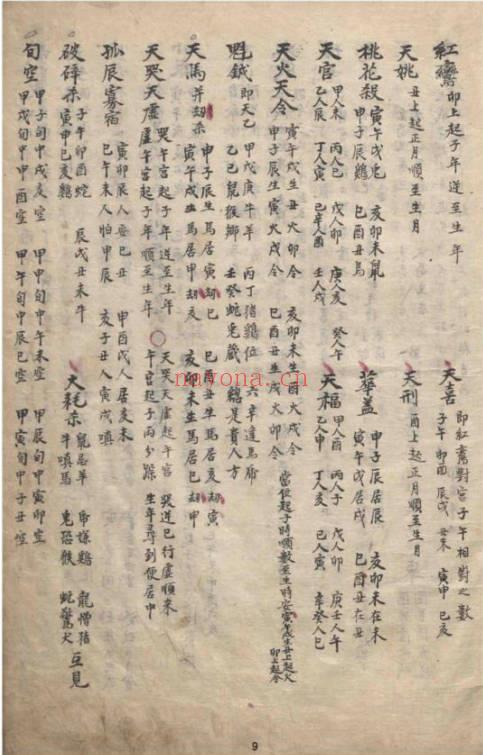 紅鸞 卯上起子年逆至生年 天喜 即紅鸞對宮子午相對之數 子午 卯酉 辰戌 丑未 寅申 巳亥
天姚 丑上起正月順至生月 天刑 酉上起正月順至生月
桃花殺 寅午戌兔 申子辰鷄 亥卯未鼠 巳酉丑馬 華蓋 申子辰居辰 寅午戌居戌 亥卯未在未 巳酉丑在丑
天官 甲人未 乙人辰 丙人巳 丁人寅 戊人卯 己辛人酉 庚人亥 壬人戌 癸人午 天福 甲人酉 乙人申 丙人子 丁人亥 戊人卯 己人寅 庚壬人午 辛癸人巳
天火天令 寅午戌生丑火卯令 申子辰生寅火戌令 亥卯未生酉火戌令 巳酉丑生戌火卯令
魁鉞 即天乙 甲戊庚牛羊 乙己鼠猴鄉 丙丁猪鷄位 壬癸蛇兔藏 六辛逢馬虎 是貴人方
天馬并刧殺 申子辰生馬居寅刧巳 寅午戌生馬居申刧亥 巳酉丑生馬居亥刧寅 亥卯未生馬居巳刧申
天哭天虛 哭午宮起子年逆至生年 虛午宮起子年順至生年 天哭天虛起午宮 哭逆巳行虛順未 午宮起子兩分踪 生年尋到便居中
孤辰寡宿 寅卯辰人安巳丑 巳午未人怕申辰 申酉戌人居亥未 亥子丑人寅戌嗔
破碎殺 子午卯酉蛇 寅申巳亥鷄 辰戌丑未牛 大耗殺 鼠忌羊 牛嗔馬 鷄 兔恐猴 龍憎猪 蛇驚犬 互見
旬空 甲子旬中戌亥空 甲戌旬中申酉空 甲申旬中午未空 甲午旬中辰巳空 甲辰旬中寅卯空 甲寅旬中子丑空
nayona.cn
9